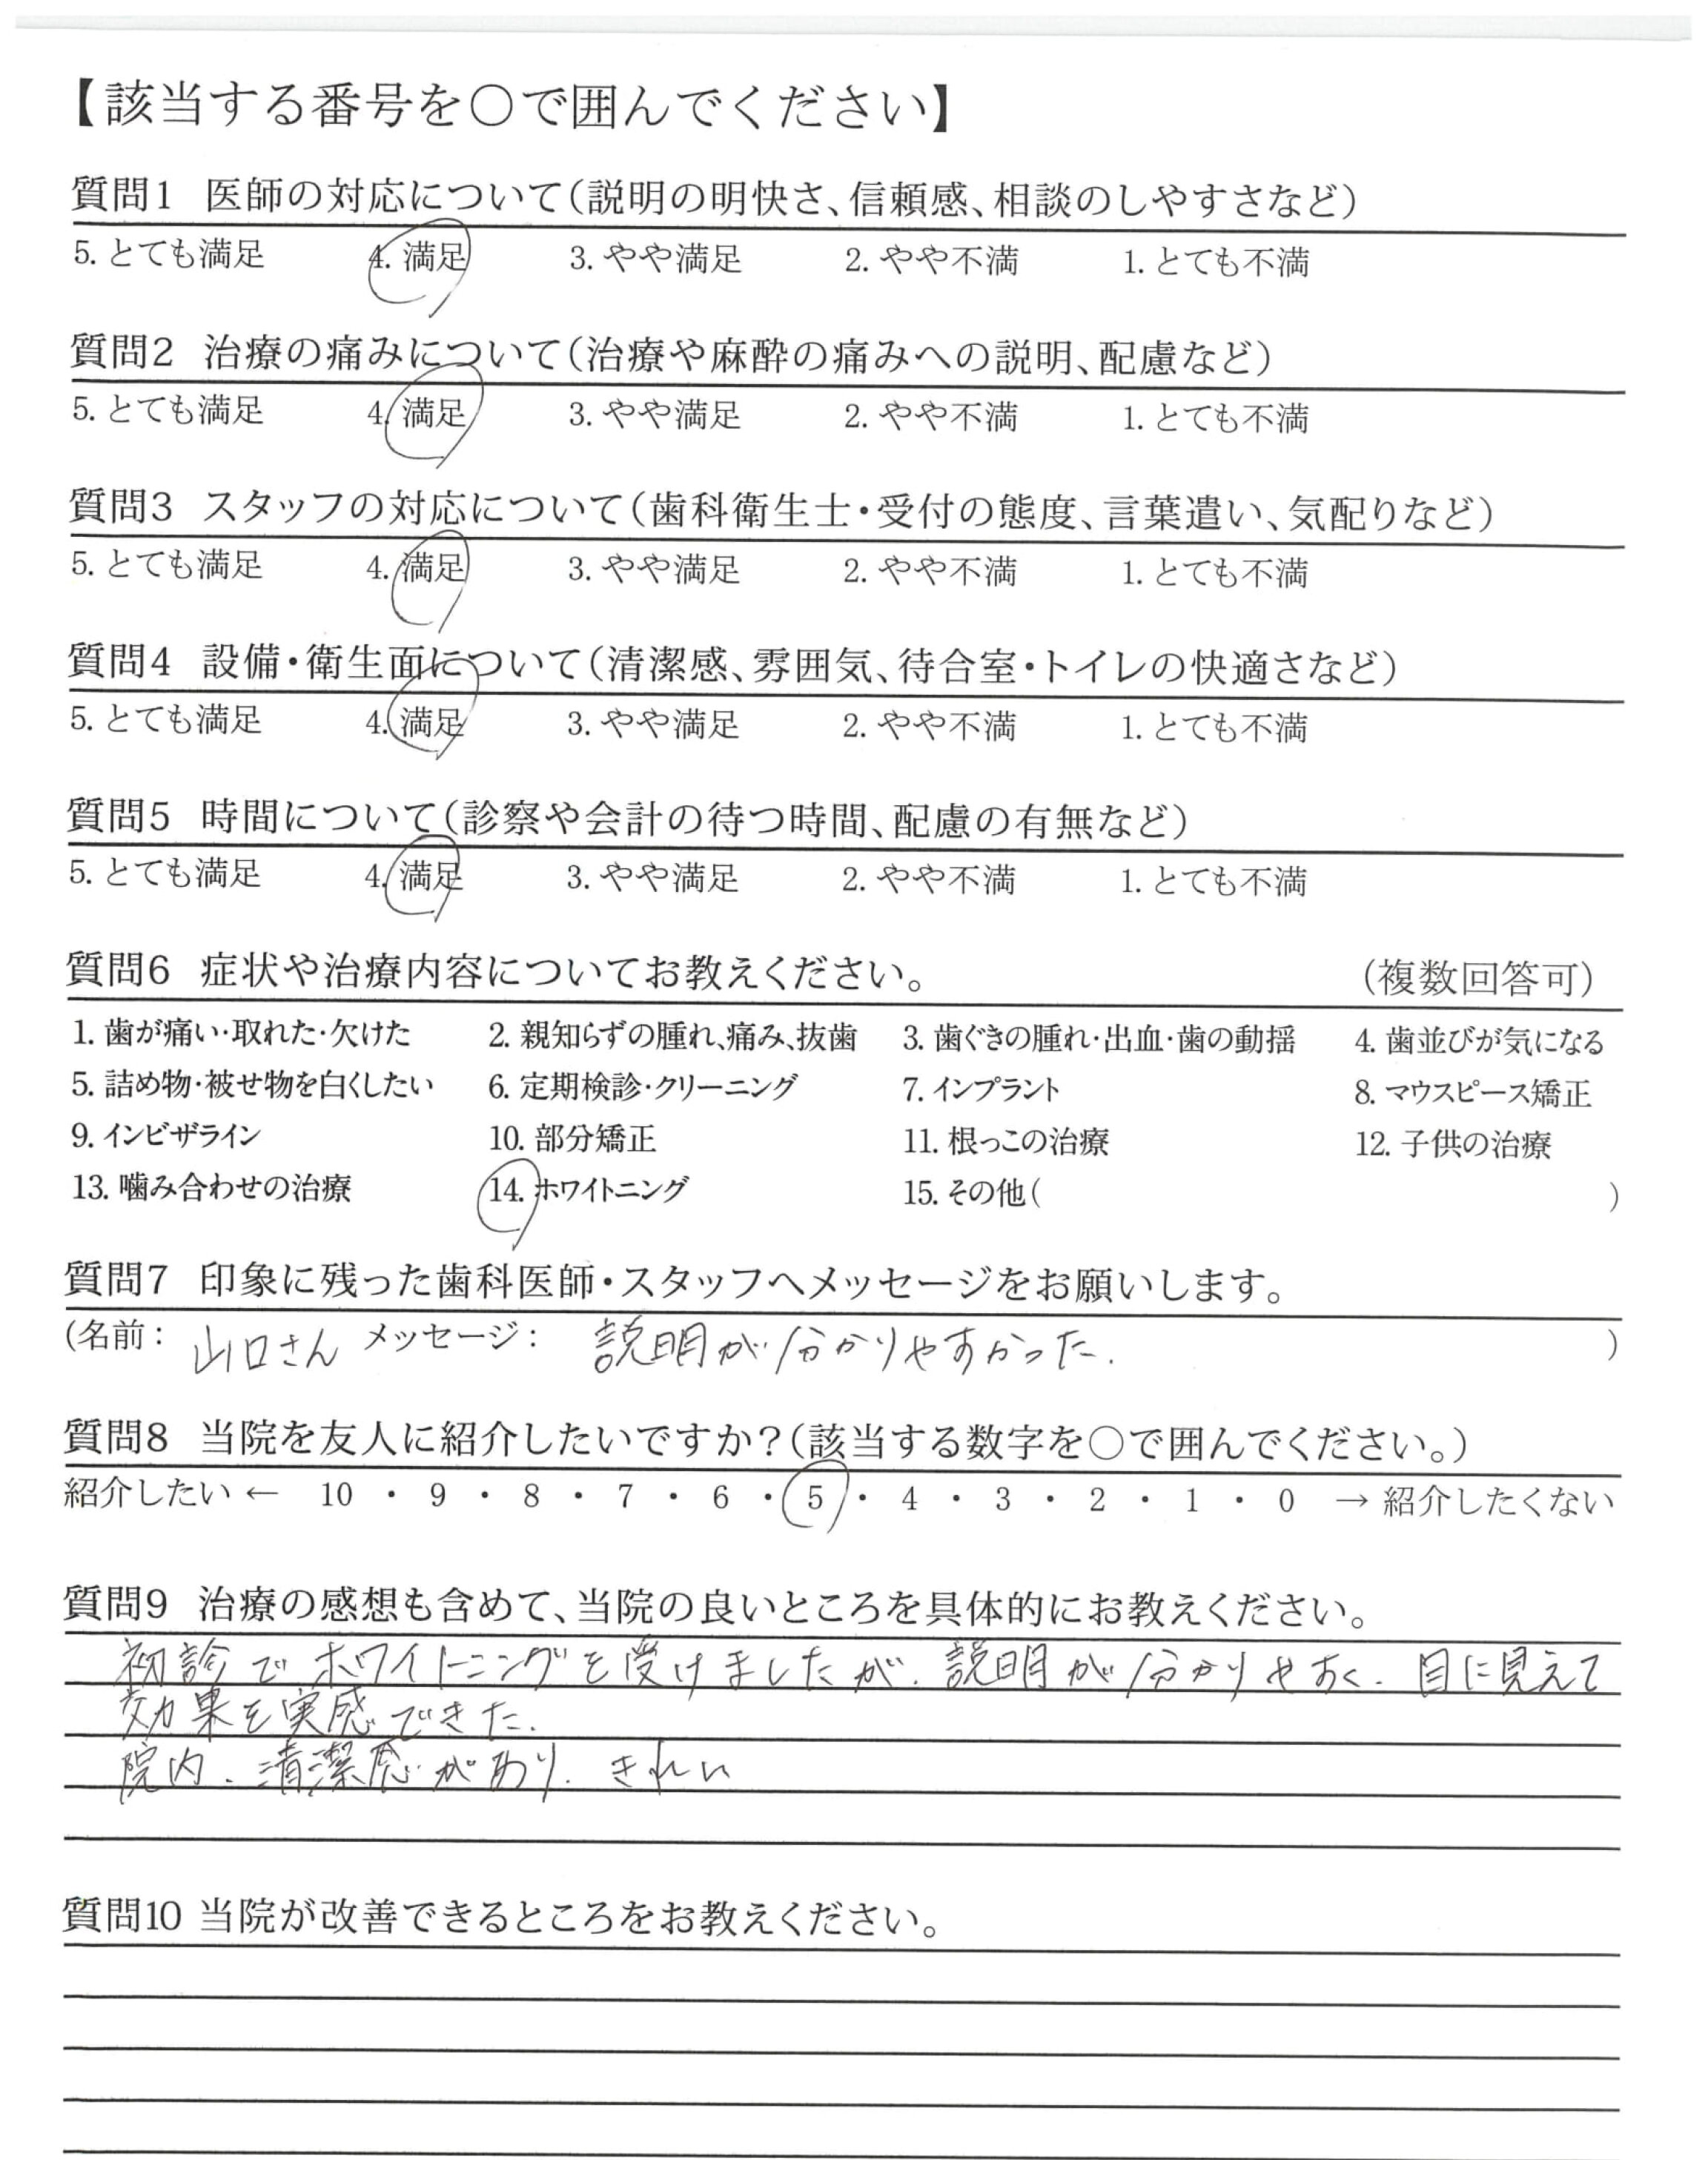 【該当する番号を〇で囲んでください】
質問1 医師の対応について(説明の明快さ、信頼感、相談のしやすさなど)
5. とても満足 4. 満足 3. やや満足 2. やや不満 1. とても不満
質問2 治療の痛みについて(治療や麻酔の痛みへの説明、配慮など)
5. とても満足 4. 満足 3. やや満足 2. やや不満 1. とても不満
質問3 スタッフの対応について(歯科衛生士・受付の態度、言葉遣い、気配りなど)
5. とても満足 4. 満足 3. やや満足 2. やや不満 1. とても不満
質問4 設備・衛生面について(清潔感、雰囲気、待合室・トイレの快適さなど)
5. とても満足 4. 満足 3. やや満足 2. やや不満 1. とても不満
質問5 時間について(診察や会計の待つ時間、配慮の有無など)
5. とても満足 4. 満足 3. やや満足 2. やや不満 1. とても不満
質問6 症状や治療内容についてお教えください。 (複数回答可)
1. 歯が痛い・取れた・欠けた 2. 親知らずの腫れ、痛み、抜歯 3. 歯ぐきの腫れ・出血・歯の動揺 4. 歯並びが気になる
5. 詰め物・被せ物を白くしたい 6. 定期検診・クリーニング 7. インプラント 8. マウスピース矯正
9. インビザライン 10. 部分矯正 11. 根っこの治療 12. 子供の治療
13. 噛み合わせの治療 14. ホワイトニング 15. その他( )
質問7 印象に残った歯科医師・スタッフへメッセージをお願いします。
(名前： 山口さん メッセージ： 説明が分かりやすかった. )
質問8 当院を友人に紹介したいですか？(該当する数字を〇で囲んでください。)
紹介したい ← 10 ・ 9 ・ 8 ・ 7 ・ 6 ・ 5 ・ 4 ・ 3 ・ 2 ・ 1 ・ 0 → 紹介したくない
質問9 治療の感想も含めて、当院の良いところを具体的にお教えください。
初診でホワイトニングを受けましたが、説明が分かりやすく、目に見えて
効果を実感できた.
院内、清潔感があり、きれい
質問10 当院が改善できるところをお教えください。